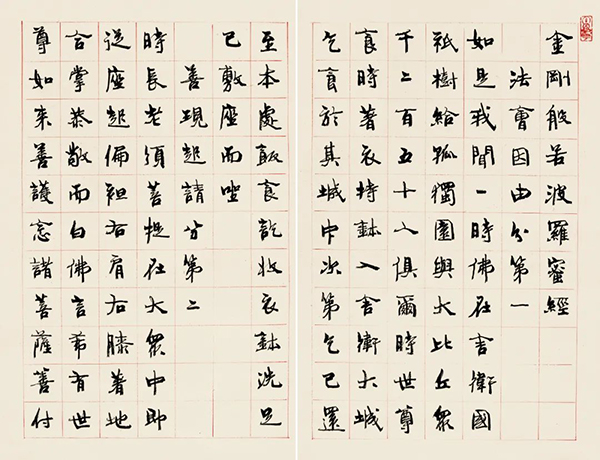 金剛般若波羅蜜經
法會因由分第一
如是我聞一時佛在舍衛國
祇樹給孤獨園與大比丘眾
千二百五十人俱爾時世尊
食時著衣持鉢入舍衛大城
乞食於其城中次第乞已還
至本處飯食訖收衣鉢洗足
已敷座而坐
善現起請分第二
時長老須菩提在大眾中即
從座起偏袒右肩右膝著地
合掌恭敬而白佛言希有世
尊如來善護念諸菩薩善付